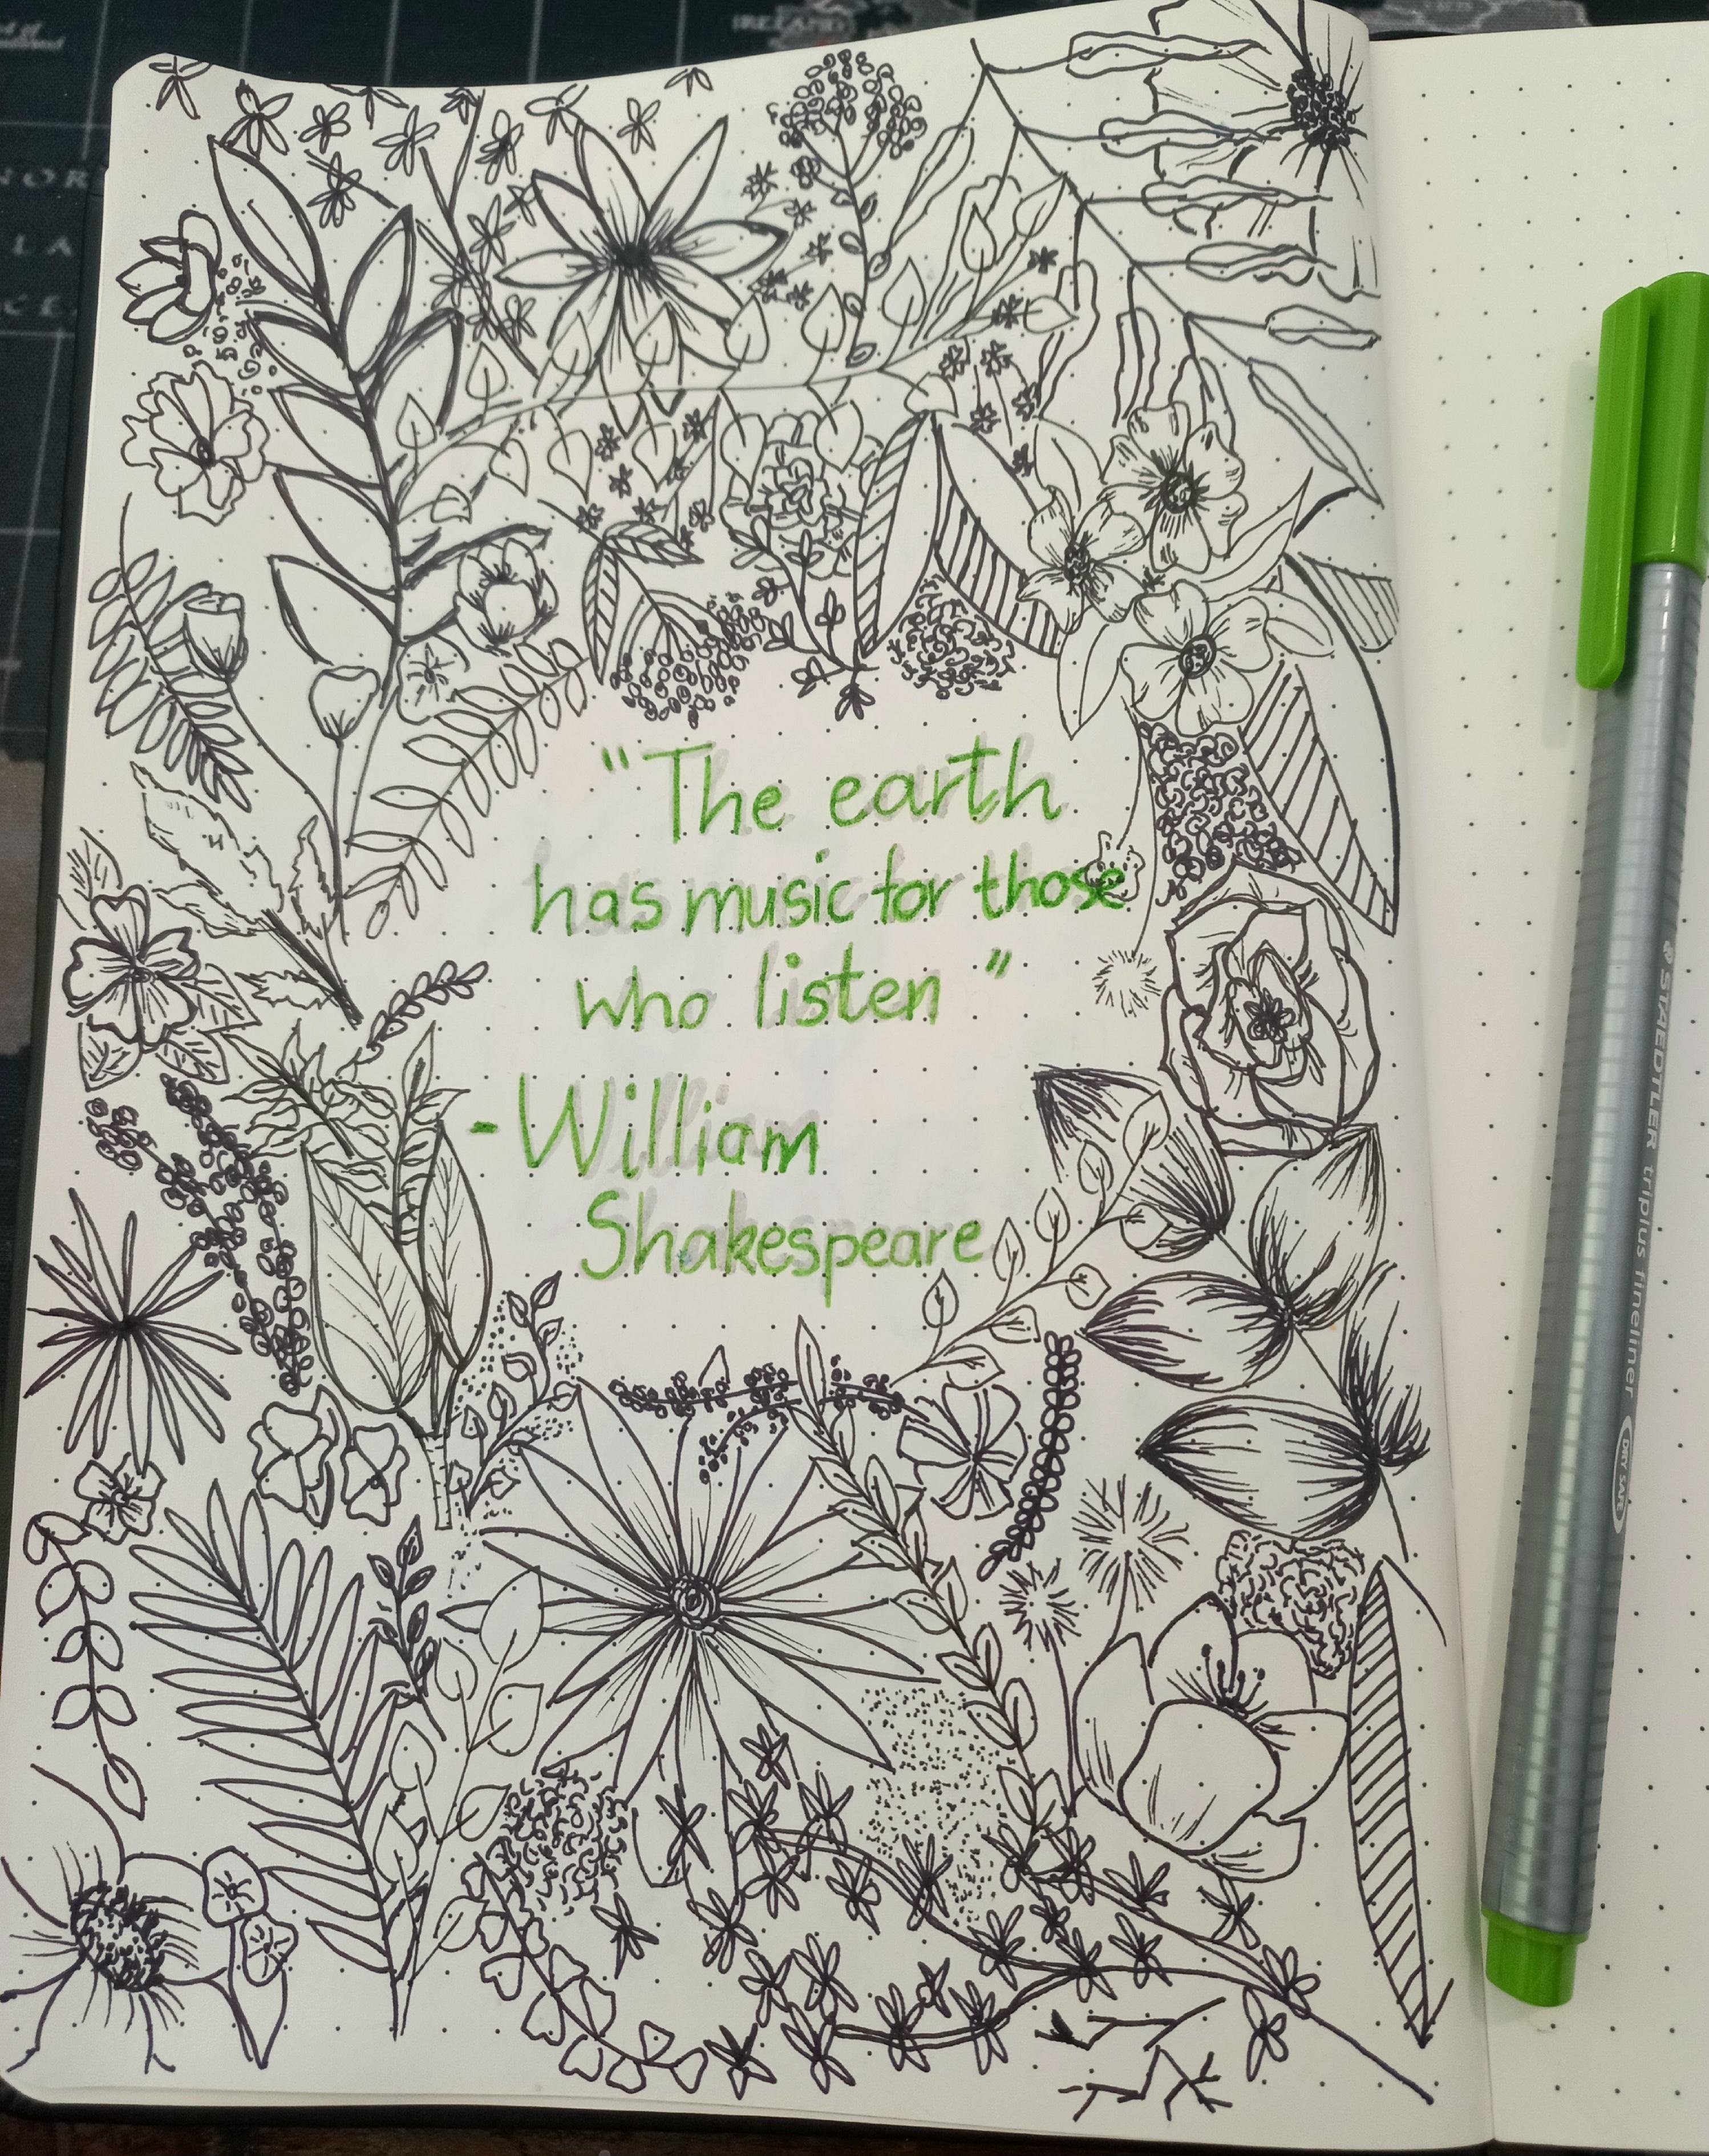 IRELAND
NOR
LA
"The earth
has music for those
who listen"
-William
Shakespeare
STAEDTLER triplus fineliner
DRY SAFE